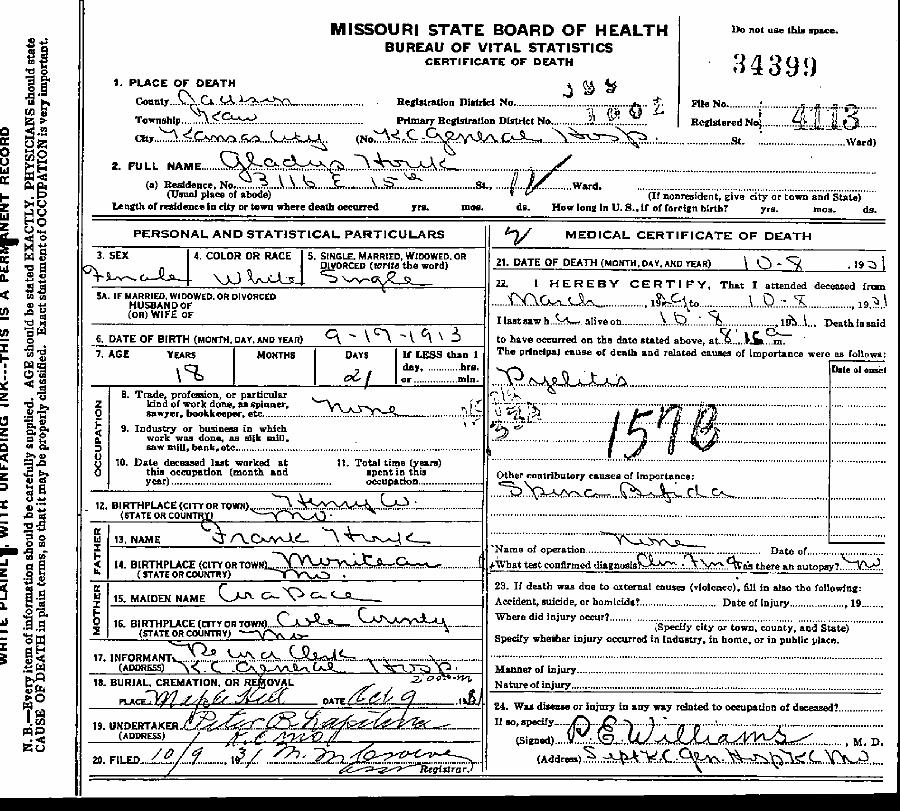 MISSOURI STATE BOARD OF HEALTH
BUREAU OF VITAL STATISTICS
CERTIFICATE OF DEATH
Do not use this space.
34399
1. PLACE OF DEATH
County Jackson
Registration District No.
File No.
Township Kaw
Primary Registration District No. 1002
Registered No. 4113
City Kansas City (No. K.C. General Hosp. St. Ward)
2. FULL NAME Gladys Houk
(a) Residence, No. 3116 E 15th St., Ward.
(Usual place of abode) (If nonresident, give city or town and State)
Length of residence in city or town where death occurred yrs. mos. ds. How long in U. S., if of foreign birth? yrs. mos. ds.
PERSONAL AND STATISTICAL PARTICULARS
3. SEX 4. COLOR OR RACE 5. SINGLE, MARRIED, WIDOWED, OR
DIVORCED (write the word)
Female White Single
5A. IF MARRIED, WIDOWED, OR DIVORCED
HUSBAND OF
(OR) WIFE OF
6. DATE OF BIRTH (MONTH, DAY, AND YEAR) 9-17-1913
7. AGE YEARS MONTHS DAYS If LESS than 1
day, hrs.
or min.
18 21
OCCUPATION
8. Trade, profession, or particular
kind of work done, as spinner,
sawyer, bookkeeper, etc. None
9. Industry or business in which
work was done, as silk mill,
saw mill, bank, etc.
10. Date deceased last worked at
this occupation (month and
year)
11. Total time (years)
spent in this
occupation
12. BIRTHPLACE (CITY OR TOWN) Henry Co.
(STATE OR COUNTRY) Mo.
FATHER
13. NAME Frank Houk
14. BIRTHPLACE (CITY OR TOWN) Moniteau
(STATE OR COUNTRY) Mo.
MOTHER
15. MAIDEN NAME Ora Pace
16. BIRTHPLACE (CITY OR TOWN) Cole County
(STATE OR COUNTRY) Mo
17. INFORMANT Clerk
(ADDRESS) K.C. General Hosp.
18. BURIAL, CREMATION, OR REMOVAL
PLACE Maple Hill DATE Oct 9 1931
19. UNDERTAKER Peter B Lapetina
(ADDRESS) K.C. Mo
20. FILED 10/9 1931 M. M.
Asst Registrar.
MEDICAL CERTIFICATE OF DEATH
21. DATE OF DEATH (MONTH, DAY, AND YEAR) 10-8, 1931
22. I HEREBY CERTIFY, That I attended deceased from
March, 1929 to 10-8, 1931
I last saw her alive on 10-8, 1931. Death is said
to have occurred on the date stated above, at m.
The principal cause of death and related causes of importance were as follows:
Date of onset
Pyelitis
157B
Other contributory causes of importance:
Spina Bifida
Name of operation None Date of
What test confirmed diagnosis? Clin. Fndgs Was there an autopsy? No
23. If death was due to external causes (violence), fill in also the following:
Accident, suicide, or homicide? Date of injury, 19
Where did injury occur?
(Specify city or town, county, and State)
Specify whether injury occurred in industry, in home, or in public place.
Manner of injury
Nature of injury
24. Was disease or injury in any way related to occupation of deceased?
If so, specify
(Signed) P E Williams, M. D.
(Address) Supt K.C. Gen Hosp K.C. Mo
WRITE PLAINLY, WITH UNFADING INK---THIS IS A PERMANENT RECORD
N. B.—Every item of information should be carefully supplied. AGE should be stated EXACTLY. PHYSICIANS should state
CAUSE OF DEATH in plain terms, so that it may be properly classified. Exact statement of OCCUPATION is very important.